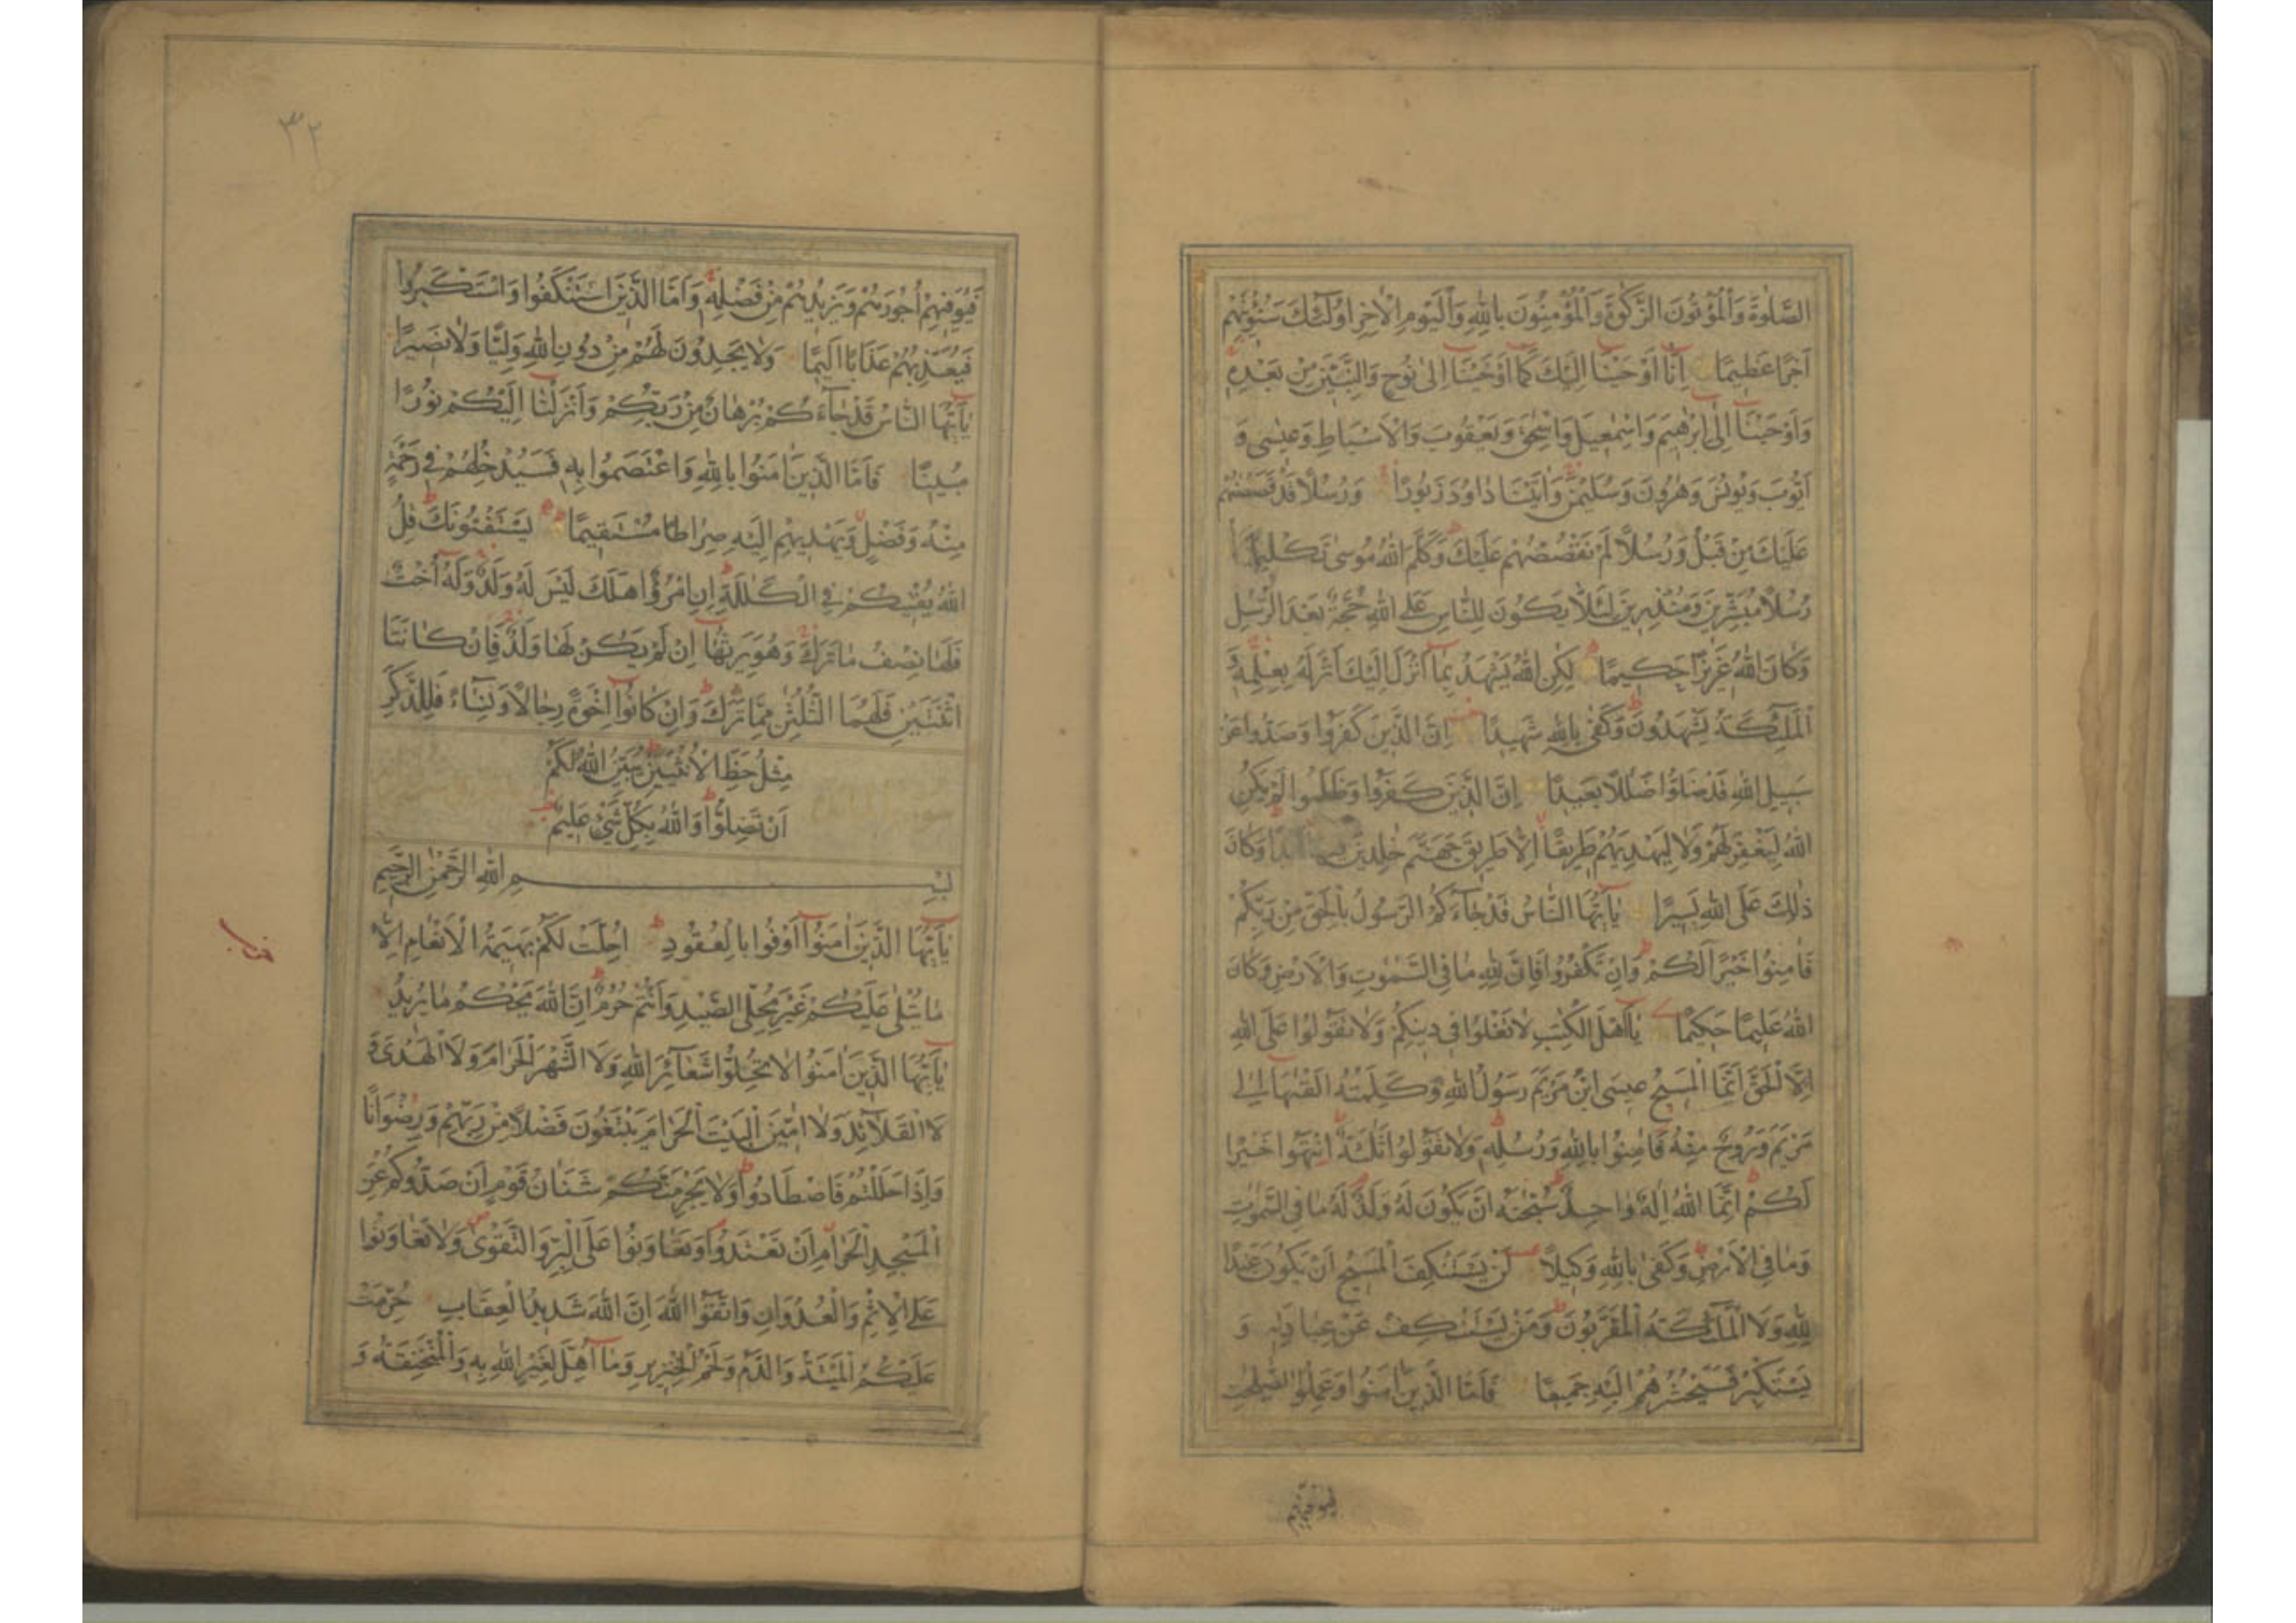 الصَّلٰوةَ وَالْمُؤْتُونَ الزَّكٰوةَ وَالْمُؤْمِنُونَ بِاللّٰهِ وَالْيَوْمِ الْاٰخِرِ اُولٰٓئِكَ سَنُؤْتِيهِمْ
اَجْرًا عَظِيمًا اِنَّا اَوْحَيْنَا اِلَيْكَ كَمَا اَوْحَيْنَا اِلٰى نُوحٍ وَالنَّبِيّٖنَ مِنْ بَعْدِهِ
وَاَوْحَيْنَا اِلٰى اِبْرٰهِيمَ وَاِسْمٰعِيلَ وَاِسْحٰقَ وَيَعْقُوبَ وَالْاَسْبَاطِ وَعِيسٰى وَ
اَيُّوبَ وَيُونُسَ وَهٰرُونَ وَسُلَيْمٰنَ وَاٰتَيْنَا دَاوُدَ زَبُورًا وَرُسُلًا قَدْ قَصَصْنٰهُمْ
عَلَيْكَ مِنْ قَبْلُ وَرُسُلًا لَمْ نَقْصُصْهُمْ عَلَيْكَ وَكَلَّمَ اللّٰهُ مُوسٰى تَكْلِيمًا
رُسُلًا مُبَشِّرِينَ وَمُنْذِرِينَ لِئَلَّا يَكُونَ لِلنَّاسِ عَلَى اللّٰهِ حُجَّةٌ بَعْدَ الرُّسُلِ
وَكَانَ اللّٰهُ عَزِيزًا حَكِيمًا لٰكِنِ اللّٰهُ يَشْهَدُ بِمَا اَنْزَلَ اِلَيْكَ اَنْزَلَهُ بِعِلْمِهِ وَ
الْمَلٰٓئِكَةُ يَشْهَدُونَ وَكَفٰى بِاللّٰهِ شَهِيدًا اِنَّ الَّذِينَ كَفَرُوا وَصَدُّوا عَنْ
سَبِيلِ اللّٰهِ قَدْ ضَلُّوا ضَلٰلًا بَعِيدًا اِنَّ الَّذِينَ كَفَرُوا وَظَلَمُوا لَمْ يَكُنِ
اللّٰهُ لِيَغْفِرَ لَهُمْ وَلَا لِيَهْدِيَهُمْ طَرِيقًا اِلَّا طَرِيقَ جَهَنَّمَ خٰلِدِينَ فِيهَا اَبَدًا وَكَانَ
ذٰلِكَ عَلَى اللّٰهِ يَسِيرًا يَاۤاَيُّهَا النَّاسُ قَدْ جَاۤءَكُمُ الرَّسُولُ بِالْحَقِّ مِنْ رَبِّكُمْ
فَاٰمِنُوا خَيْرًا لَكُمْ وَاِنْ تَكْفُرُوا فَاِنَّ لِلّٰهِ مَا فِى السَّمٰوٰتِ وَالْاَرْضِ وَكَانَ
اللّٰهُ عَلِيمًا حَكِيمًا يَاۤاَهْلَ الْكِتٰبِ لَا تَغْلُوا فِى دِينِكُمْ وَلَا تَقُولُوا عَلَى اللّٰهِ
اِلَّا الْحَقَّ اِنَّمَا الْمَسِيحُ عِيسَى ابْنُ مَرْيَمَ رَسُولُ اللّٰهِ وَكَلِمَتُهُ اَلْقٰيهَا اِلٰى
مَرْيَمَ وَرُوحٌ مِنْهُ فَاٰمِنُوا بِاللّٰهِ وَرُسُلِهِ وَلَا تَقُولُوا ثَلٰثَةٌ اِنْتَهُوا خَيْرًا
لَكُمْ اِنَّمَا اللّٰهُ اِلٰهٌ وَاحِدٌ سُبْحٰنَهُ اَنْ يَكُونَ لَهُ وَلَدٌ لَهُ مَا فِى السَّمٰوٰتِ
وَمَا فِى الْاَرْضِ وَكَفٰى بِاللّٰهِ وَكِيلًا لَنْ يَسْتَنْكِفَ الْمَسِيحُ اَنْ يَكُونَ عَبْدًا
لِلّٰهِ وَلَا الْمَلٰٓئِكَةُ الْمُقَرَّبُونَ وَمَنْ يَسْتَنْكِفْ عَنْ عِبَادَتِهِ وَ
يَسْتَكْبِرْ فَسَيَحْشُرُهُمْ اِلَيْهِ جَمِيعًا فَاَمَّا الَّذِينَ اٰمَنُوا وَعَمِلُوا الصّٰلِحٰتِ
فيوفيهم
٣٢
فَيُوَفِّيهِمْ اُجُورَهُمْ وَيَزِيدُهُمْ مِنْ فَضْلِهِ وَاَمَّا الَّذِينَ اسْتَنْكَفُوا وَاسْتَكْبَرُوا
فَيُعَذِّبُهُمْ عَذَابًا اَلِيمًا وَلَا يَجِدُونَ لَهُمْ مِنْ دُونِ اللّٰهِ وَلِيًّا وَلَا نَصِيرًا
يَاۤاَيُّهَا النَّاسُ قَدْ جَاۤءَكُمْ بُرْهَانٌ مِنْ رَبِّكُمْ وَاَنْزَلْنَا اِلَيْكُمْ نُورًا
مُبِينًا فَاَمَّا الَّذِينَ اٰمَنُوا بِاللّٰهِ وَاعْتَصَمُوا بِهِ فَسَيُدْخِلُهُمْ فِى رَحْمَةٍ
مِنْهُ وَفَضْلٍ وَيَهْدِيهِمْ اِلَيْهِ صِرَاطًا مُسْتَقِيمًا يَسْتَفْتُونَكَ قُلِ
اللّٰهُ يُفْتِيكُمْ فِى الْكَلٰلَةِ اِنِ امْرُؤٌا هَلَكَ لَيْسَ لَهُ وَلَدٌ وَلَهُ اُخْتٌ
فَلَهَا نِصْفُ مَا تَرَكَ وَهُوَ يَرِثُهَا اِنْ لَمْ يَكُنْ لَهَا وَلَدٌ فَاِنْ كَانَتَا
اثْنَتَيْنِ فَلَهُمَا الثُّلُثٰنِ مِمَّا تَرَكَ وَاِنْ كَانُوا اِخْوَةً رِجَالًا وَنِسَاۤءً فَلِلذَّكَرِ
مِثْلُ حَظِّ الْاُنْثَيَيْنِ يُبَيِّنُ اللّٰهُ لَكُمْ
اَنْ تَضِلُّوا وَاللّٰهُ بِكُلِّ شَىْءٍ عَلِيمٌ
بِسْمِ اللّٰهِ الرَّحْمٰنِ الرَّحِيمِ
يَاۤاَيُّهَا الَّذِينَ اٰمَنُوا اَوْفُوا بِالْعُقُودِ اُحِلَّتْ لَكُمْ بَهِيمَةُ الْاَنْعَامِ اِلَّا
مَا يُتْلٰى عَلَيْكُمْ غَيْرَ مُحِلِّى الصَّيْدِ وَاَنْتُمْ حُرُمٌ اِنَّ اللّٰهَ يَحْكُمُ مَا يُرِيدُ
يَاۤاَيُّهَا الَّذِينَ اٰمَنُوا لَا تُحِلُّوا شَعَاۤئِرَ اللّٰهِ وَلَا الشَّهْرَ الْحَرَامَ وَلَا الْهَدْىَ وَ
لَا الْقَلَاۤئِدَ وَلَا اٰمِّينَ الْبَيْتَ الْحَرَامَ يَبْتَغُونَ فَضْلًا مِنْ رَبِّهِمْ وَرِضْوَانًا
وَاِذَا حَلَلْتُمْ فَاصْطَادُوا وَلَا يَجْرِمَنَّكُمْ شَنَاٰنُ قَوْمٍ اَنْ صَدُّوكُمْ عَنِ
الْمَسْجِدِ الْحَرَامِ اَنْ تَعْتَدُوا وَتَعَاوَنُوا عَلَى الْبِرِّ وَالتَّقْوٰى وَلَا تَعَاوَنُوا
عَلَى الْاِثْمِ وَالْعُدْوَانِ وَاتَّقُوا اللّٰهَ اِنَّ اللّٰهَ شَدِيدُ الْعِقَابِ حُرِّمَتْ
عَلَيْكُمُ الْمَيْتَةُ وَالدَّمُ وَلَحْمُ الْخِنْزِيرِ وَمَا اُهِلَّ لِغَيْرِ اللّٰهِ بِهِ وَالْمُنْخَنِقَةُ وَ